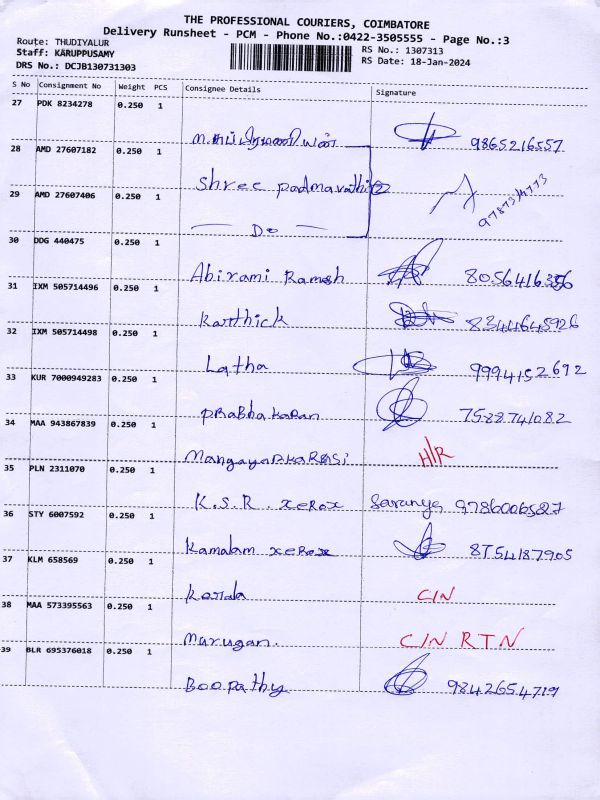 THE PROFESSIONAL COURIERS, COIMBATORE
Delivery Runsheet - PCM - Phone No.:0422-3505555 - Page No.:3
Route: THUDIYALUR RS No.: 1307313
Staff: KARUPPUSAMY RS Date: 18-Jan-2024
DRS No.: DCJB130731303
S No Consignment No Weight PCS Consignee Details Signature
27 PDK 8234278 0.250 1
9865216557
28 AMD 27607182 0.250 1
Shree Padmavathi
29 AMD 27607406 0.250 1
Do
30 DDG 440475 0.250 1
Abirami Ramesh 8056416356
31 IXM 505714496 0.250 1
Karthick 8344645926
32 IXM 505714498 0.250 1
Latha 9994152692
33 KUR 7000949283 0.250 1
Prabhakaran 7588741082
34 MAA 943867839 0.250 1
H/R
35 PLN 2311070 0.250 1
K.S.R. xerox Saranya
36 STY 6007592 0.250 1
Kamalam xerox 8754187905
37 KLM 658569 0.250 1
C/N
38 MAA 573395563 0.250 1
Murugan. C/N RTN
39 BLR 695376018 0.250 1
Boopathy 9842654719